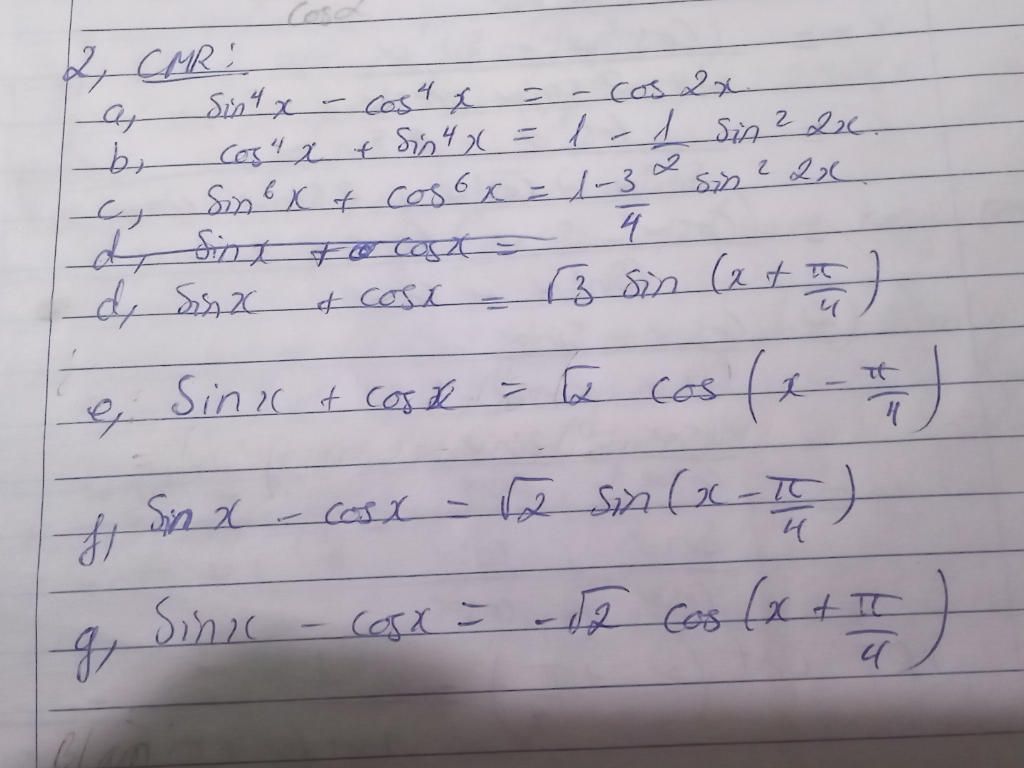 cosα
2, CMR:
a, sin⁴x - cos⁴x = - cos 2x.
b, cos⁴x + sin⁴x = 1 - 1/2 sin² 2x.
c, sin⁶x + cos⁶x = 1 - 3/4 sin² 2x.
d, sinx + cosx =
d, sinx + cosx = √3 sin (x + π/4)
e, sinx + cosx = √2 cos (x - π/4)
f, sinx - cosx = √2 sin (x - π/4)
g, sinx - cosx = -√2 cos (x + π/4)